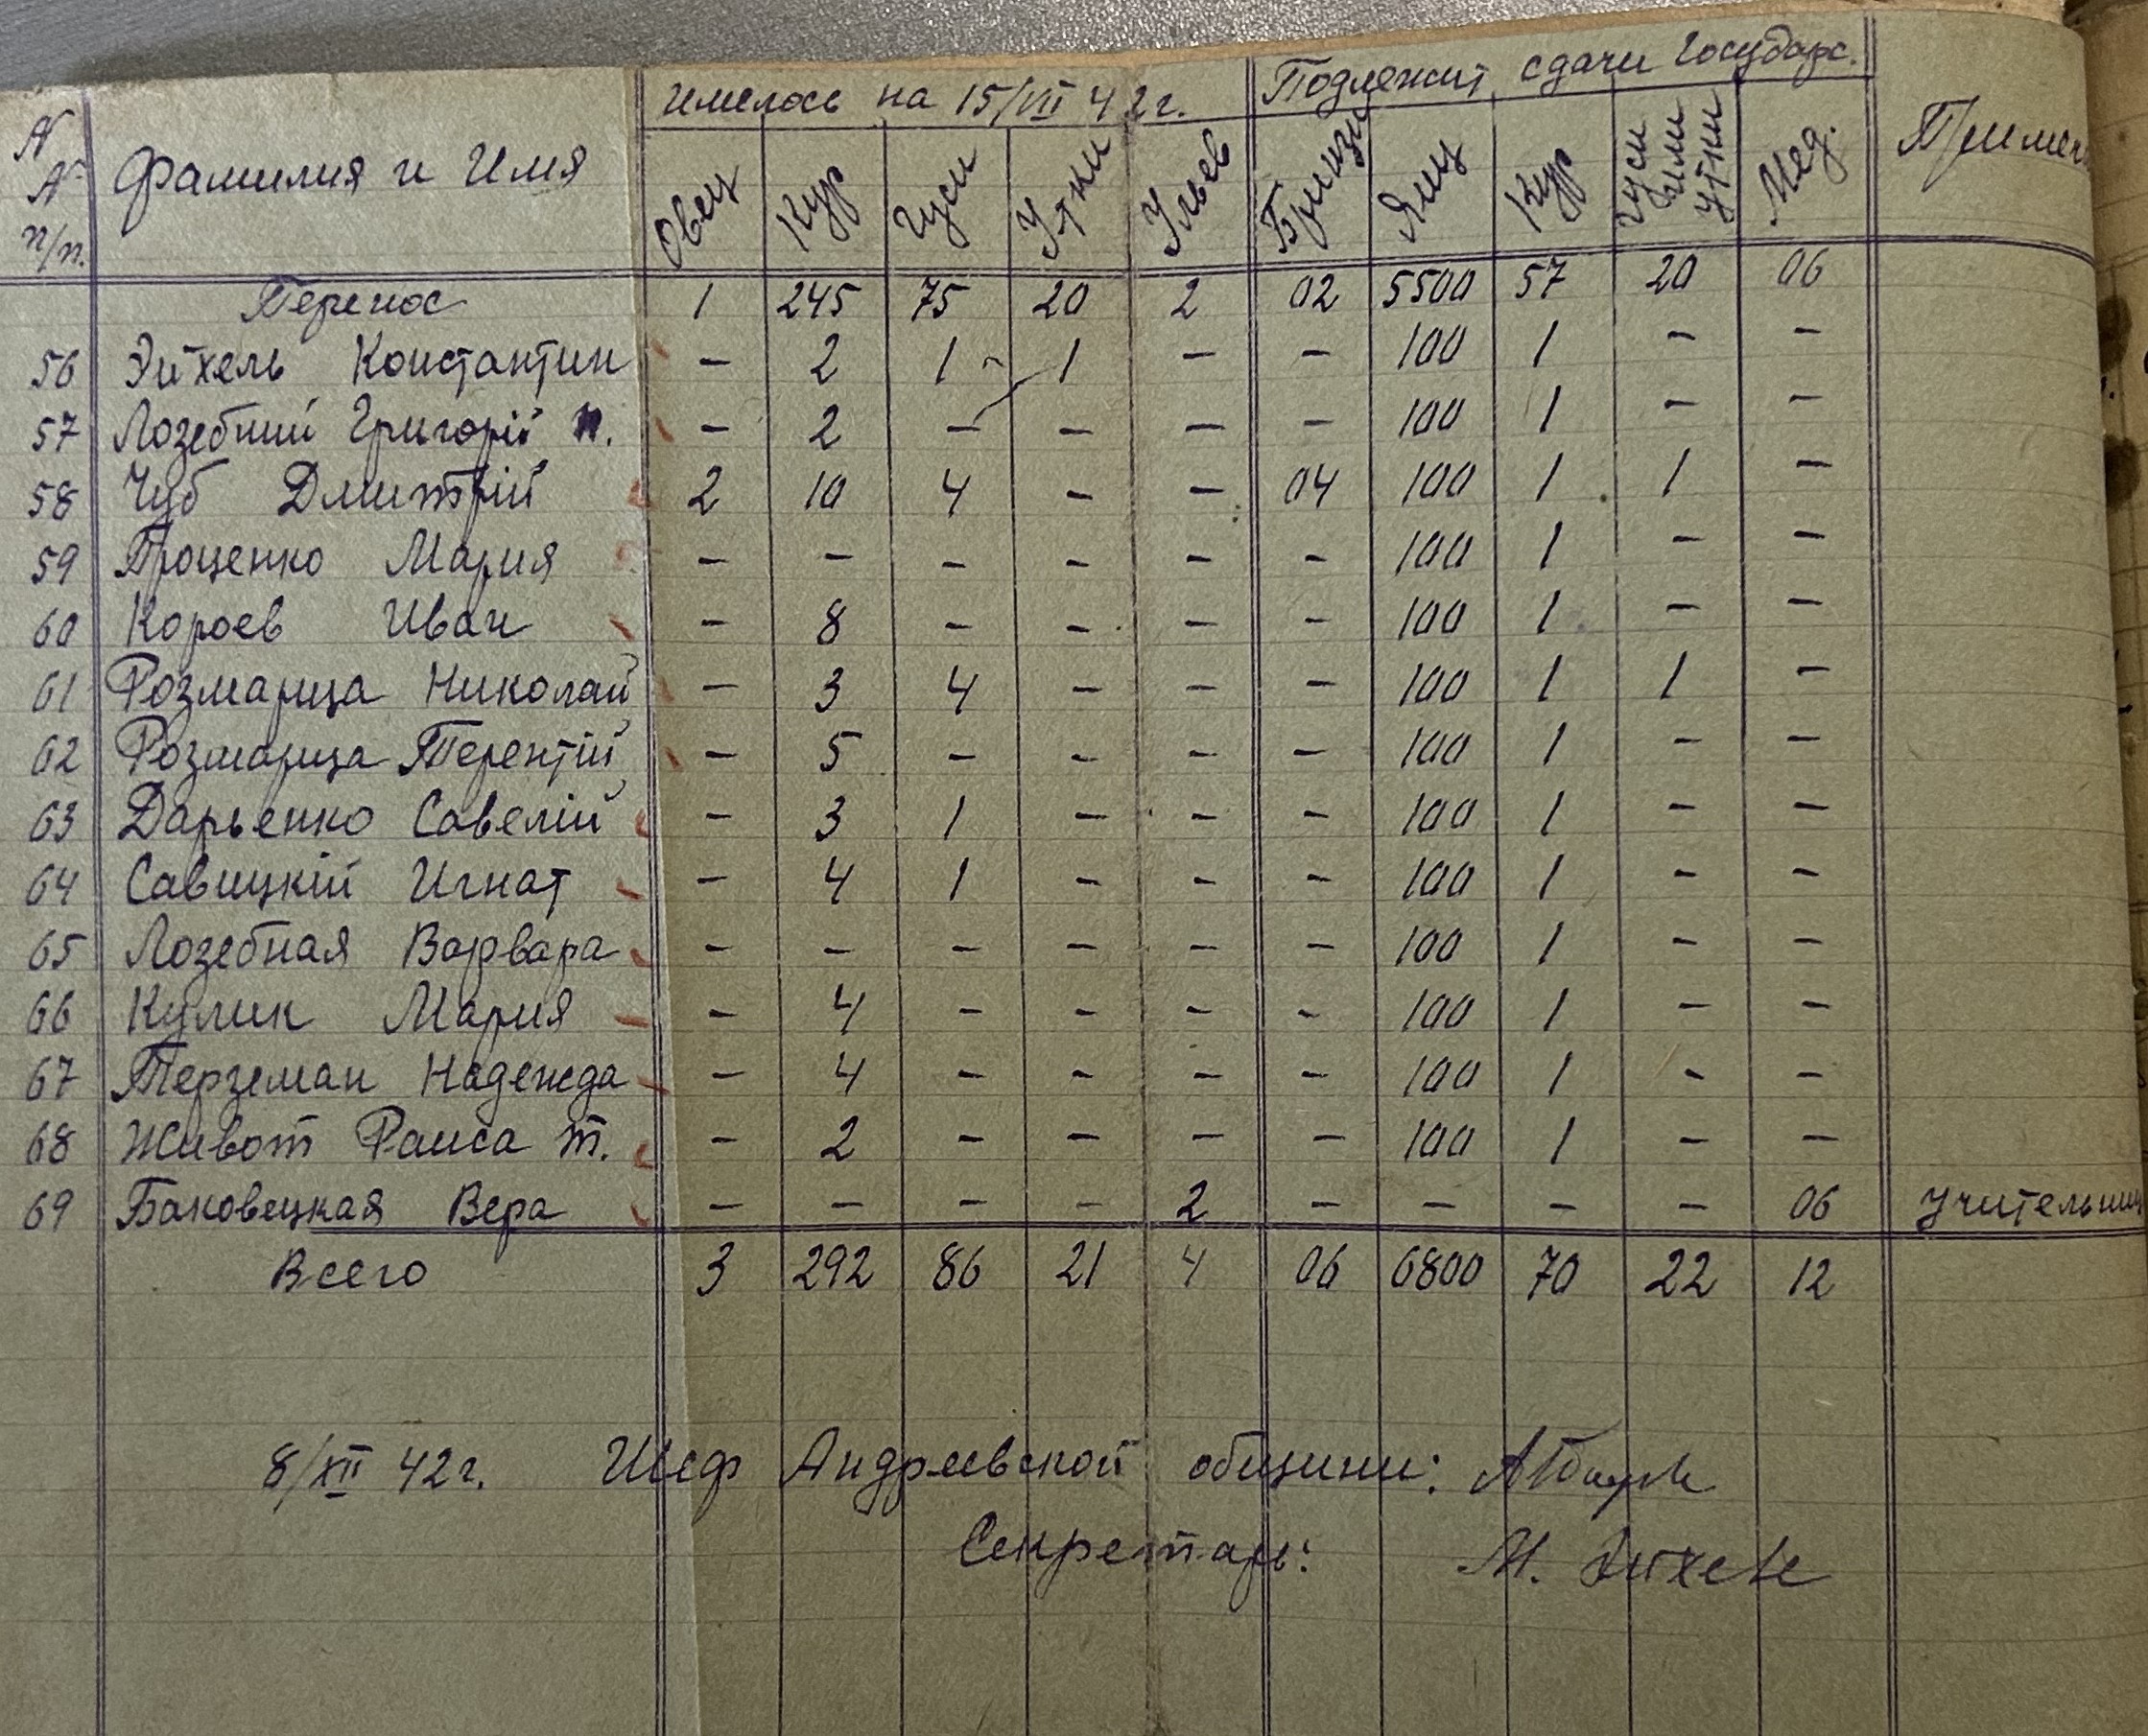 N N п/п. Фамилия и Имя Имелось на 15/VII 42 г. Подлежит сдачи Государс.
Овец Кур Гуси Утки Ульев Брынзы Яиц Кур Гуси или Утки Мед. Примеч
Перенос 1 245 75 20 2 02 5500 57 20 06
56 Эйхель Константин – 2 1 1 – – 100 1 – –
57 Лозебний Григорій Н. – 2 – – – – 100 1 – –
58 Чуб Дмитрій 2 10 4 – – 04 100 1 1 –
59 Проценко Мария – – – – – – 100 1 – –
60 Короев Иван – 8 – – – – 100 1 – –
61 Розмарица Николай – 3 4 – – – 100 1 1 –
62 Розмарица Терентій – 5 – – – – 100 1 – –
63 Дарьенко Савелій – 3 1 – – – 100 1 – –
64 Савицкій Игнат – 4 1 – – – 100 1 – –
65 Лозебная Варвара – – – – – – 100 1 – –
66 Кулик Мария – 4 – – – – 100 1 – –
67 Терземан Надежда – 4 – – – – 100 1 – –
68 Живот Раиса Т. – 2 – – – – 100 1 – –
69 Баковецкая Вера – – – – 2 – – – – 06 Учительниц
Всего 3 292 86 21 4 06 6800 70 22 12
8/XII 42 г. Шеф Андреевской общины:
Секретарь: М. Эйхель